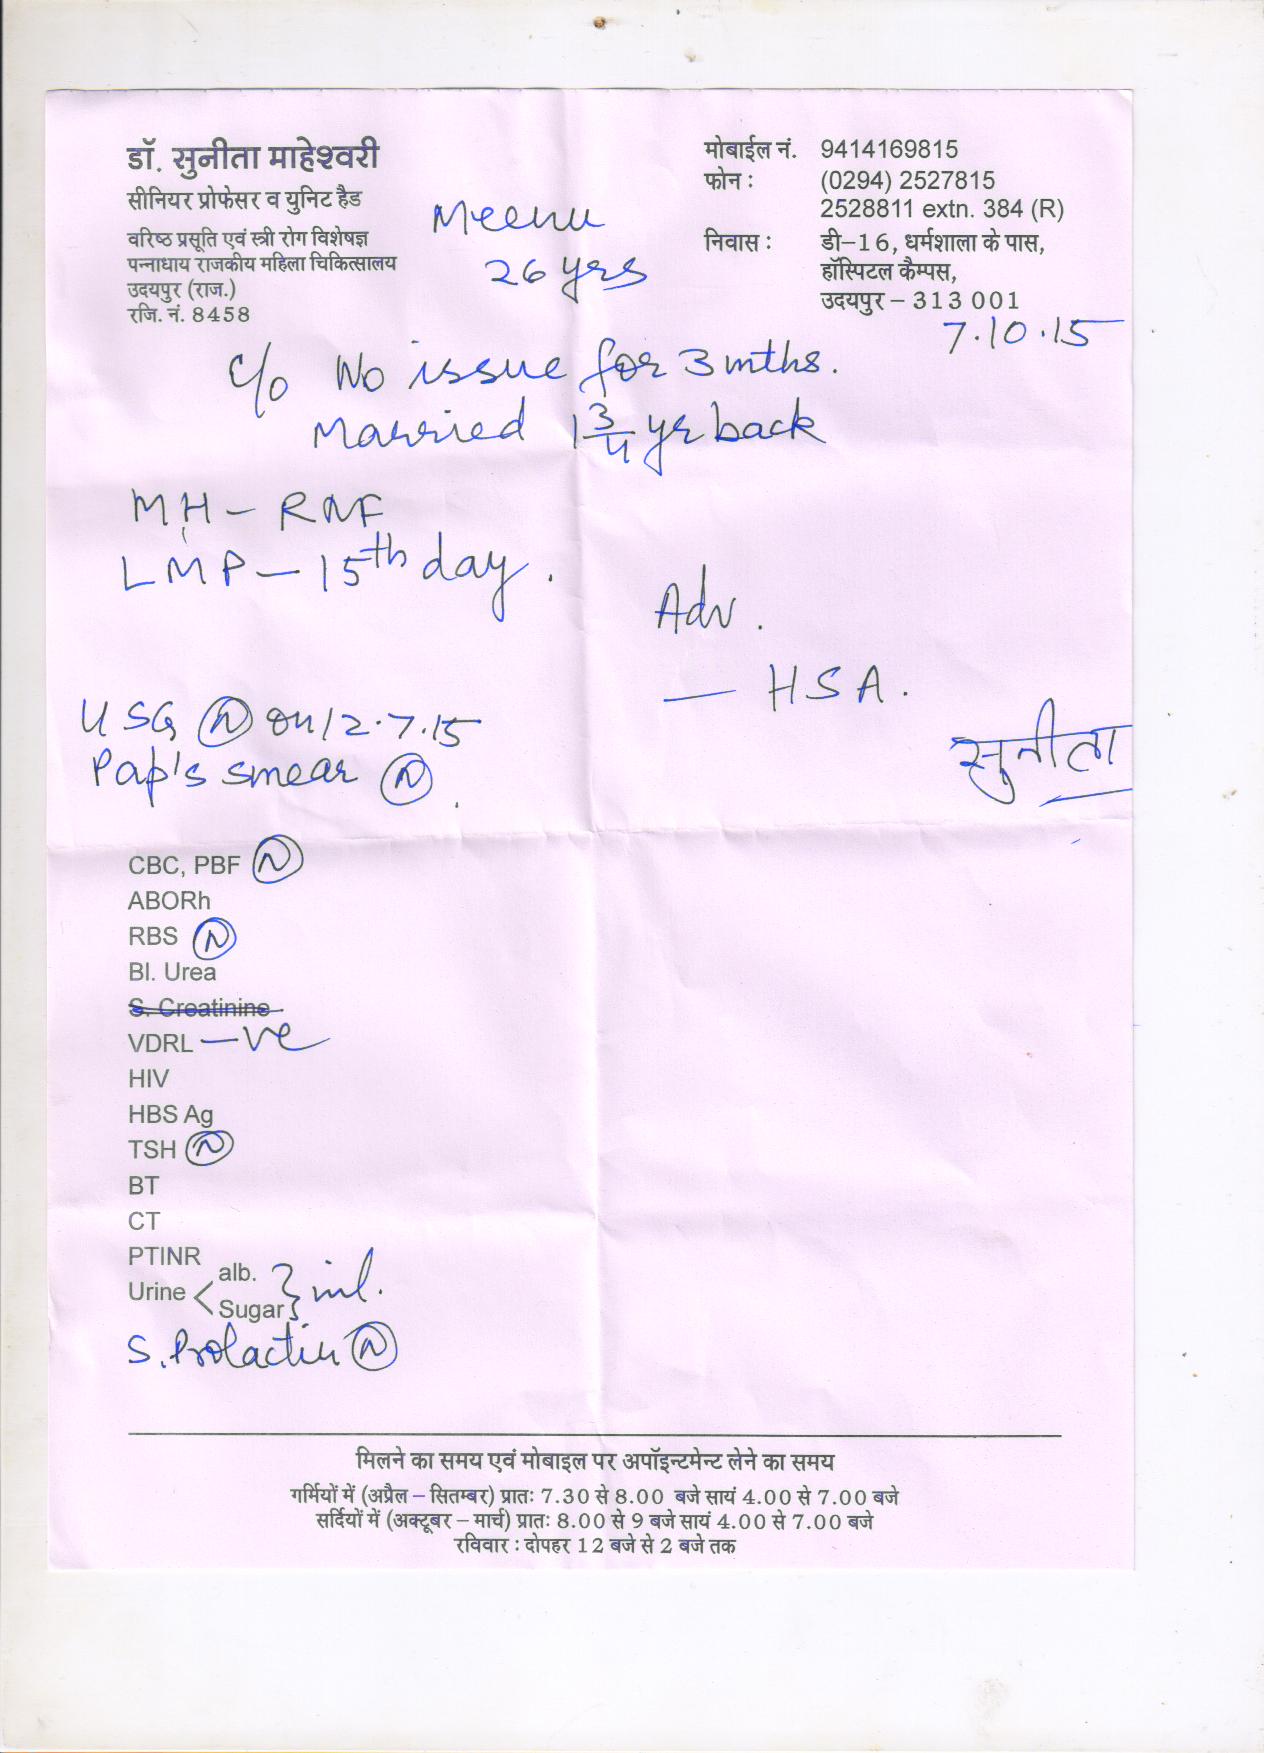 डॉ. सुनीता माहेश्वरी
सीनियर प्रोफेसर व युनिट हैड
वरिष्ठ प्रसूति एवं स्त्री रोग विशेषज्ञ
पन्नाधाय राजकीय महिला चिकित्सालय
उदयपुर (राज.)
रजि. नं. 8458
Meenu
26 yrs
मोबाईल नं. 9414169815
फोन : (0294) 2527815
2528811 extn. 384 (R)
निवास : डी–16, धर्मशाला के पास,
हॉस्पिटल कैम्पस,
उदयपुर – 313 001
7.10.15
c/o No issue for 3 mths.
Married 1 3/4 yr back
MH – RNF
LMP – 15th day.
Adv.
— HSA.
सुनीता
USG (N) on 12.7.15
Pap's smear (N).
CBC, PBF (N)
ABORh
RBS (N)
Bl. Urea
S. Creatinine
VDRL –ve
HIV
HBS Ag
TSH (N)
BT
CT
PTINR
Urine < alb. Sugar } nil.
S. Prolactin (N)
मिलने का समय एवं मोबाइल पर अपॉइन्टमेन्ट लेने का समय
गर्मियों में (अप्रैल – सितम्बर) प्रातः 7.30 से 8.00 बजे सायं 4.00 से 7.00 बजे
सर्दियों में (अक्टूबर – मार्च) प्रातः 8.00 से 9 बजे सायं 4.00 से 7.00 बजे
रविवार : दोपहर 12 बजे से 2 बजे तक